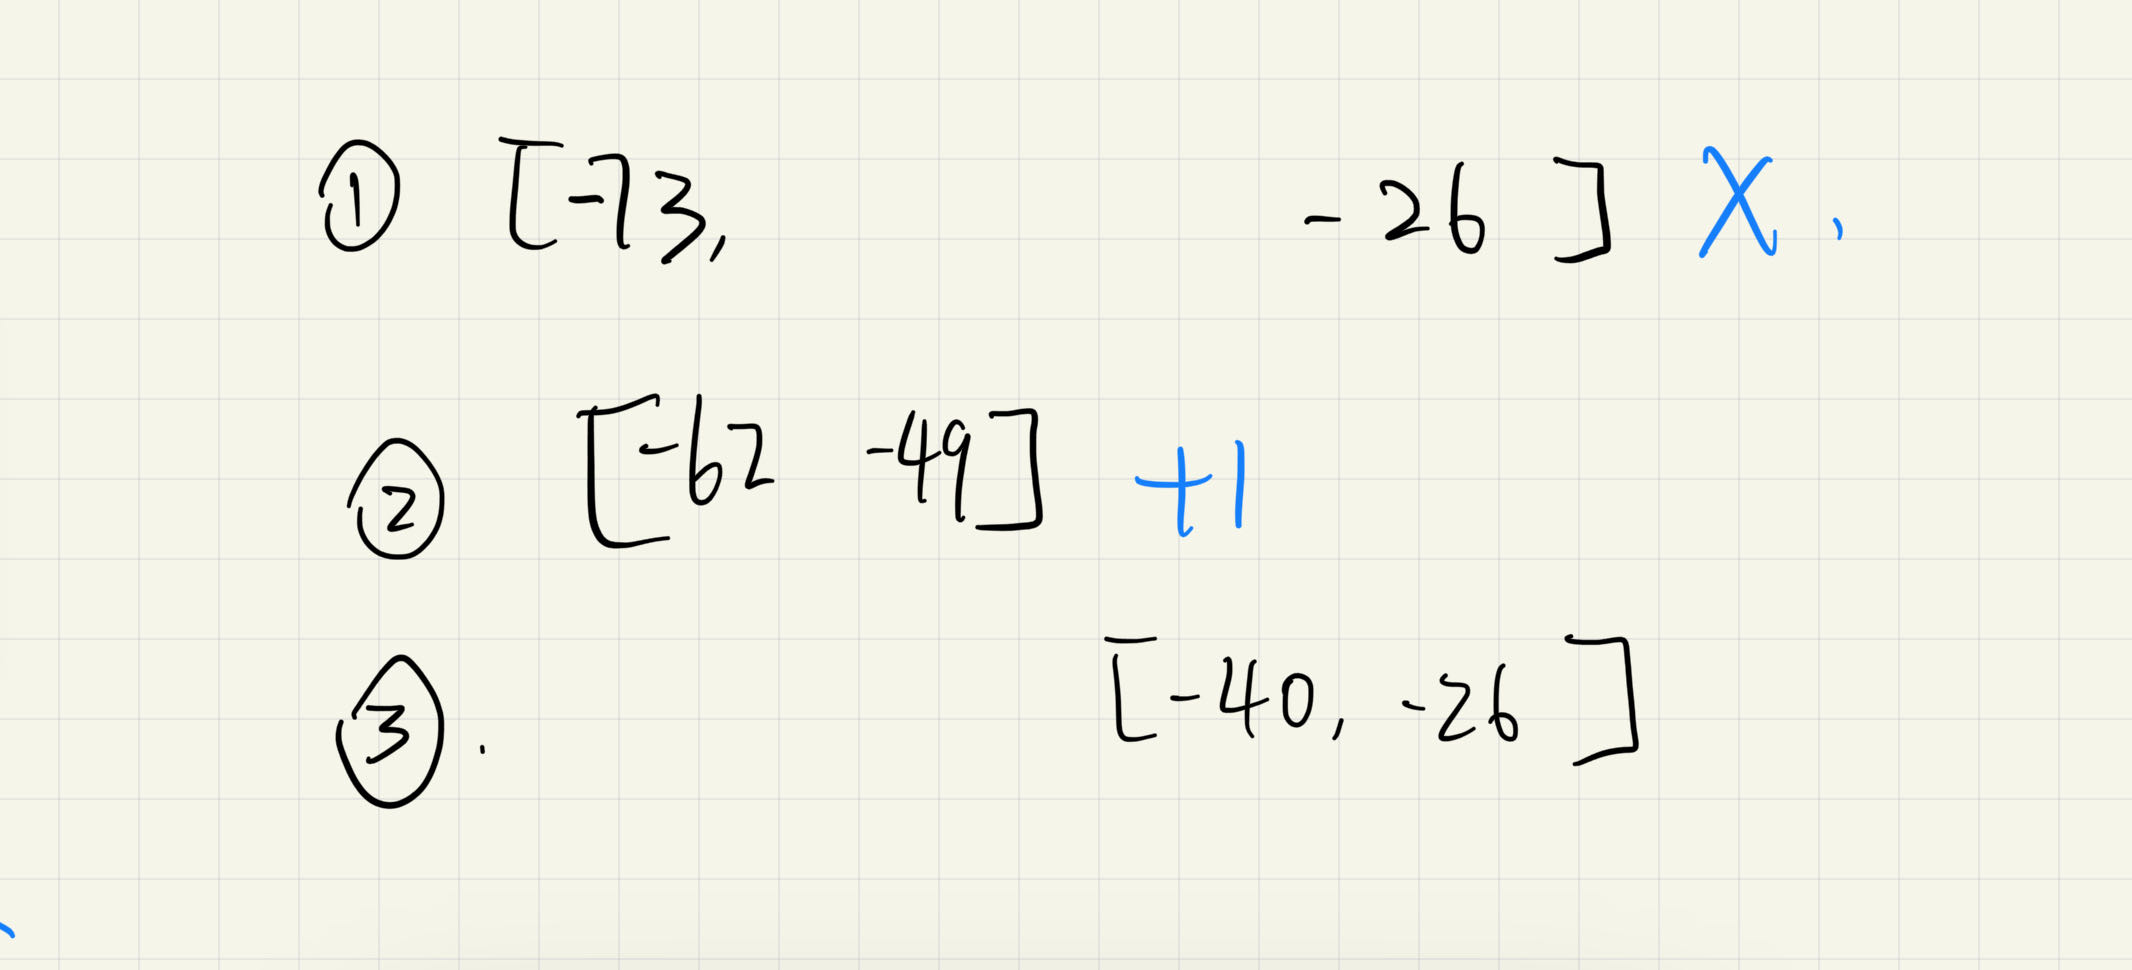 ① [-73, -26] X.
② [-62 -49] +1
③. [-40, -26]